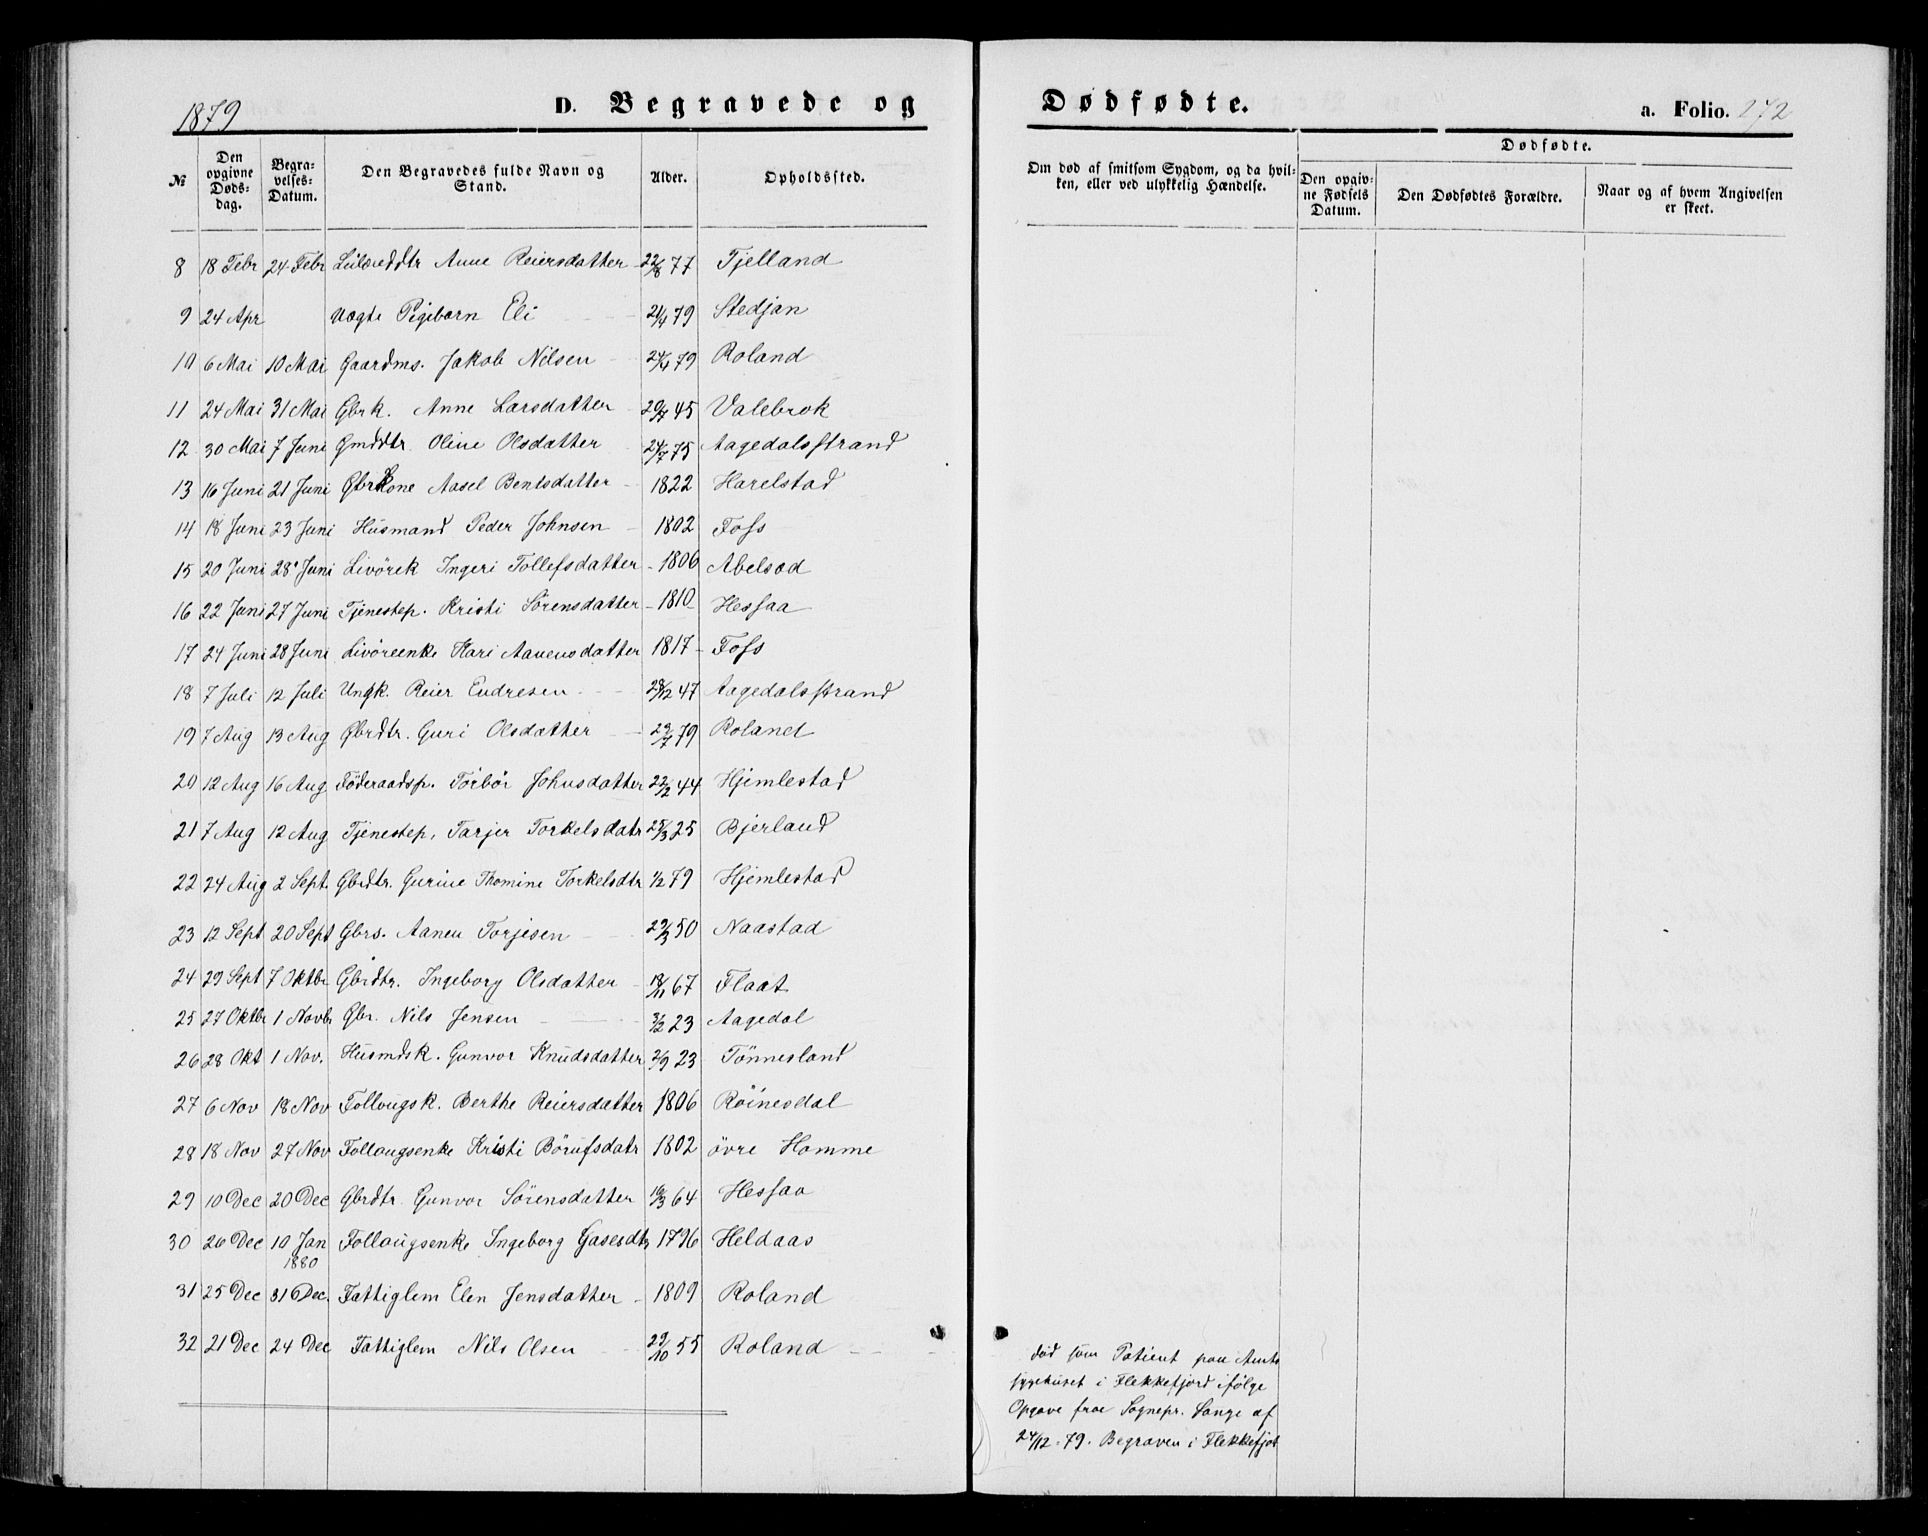 1879
D. Begravede og
Dødfødte.
a. Folio. 272
№
Den opgivne Døds-dag.
Begra-velses-Datum.
Den Begravedes fulde Navn og Stand.
Alder.
Opholdssted.
Om død af smitsom Sygdom, og da hvil-ken, eller ved ulykkelig Hændelse.
Dødfødte.
Den opgiv-ne Fødsels Datum.
Den Dødfødtes Forældre.
Naar og af hvem Angivelsen er skeet.
8 18 Febr 24 Febr Anne Reiersdatter 22/8 77 Fjelland
9 24 Apr uægte Pigebarn Eli 21/4 79 Stedjan
10 6 Mai 10 Mai Gaardms. Jakob Nilsen 24/4 79 Roland
11 24 Mai 31 Mai Gbrk. Anne Larsdatter 45 Valebrok
12 30 Mai 7 Juni Gmddtr Oline Olsdatter 24/7 75 Aagedalsstrand
13 16 Juni 21 Juni Gbrkone Aasel Bentsdatter 1822 Harelstad
14 18 Juni 23 Juni Husmand Peder Johnsen 1802 Foss
15 20 Juni 28 Juni Livörek Ingeri Tollefsdatter 1806 Abelsæd
16 22 Juni 27 Juni Tjenestep. Kristi Sörensdatter 1810 Hessaa
17 24 Juni 28 Juni Livöreenke Kari Aanensdatter 1817 Foss
18 7 Juli 12 Juli Ungk. Reier Endresen 28/12 47 Aagedalsstrand
19 7 Aug 13 Aug Gbrdtr. Guri Olsdatter 29/7 79 Roland
20 12 Aug 16 Aug Föderaadsp. Torbör Johnsdatter 22/2 44 Hjemlestad
21 7 Aug 12 Aug Tjenestep. Tarjer Torkelsdatr 25/3 25 Bjerland
22 24 Aug 2 Sept. Gbrdtr. Gurine Thomine Torkelsdtr 1/2 79 Hjemlestad
23 12 Sept 20 Sept Gbrs. Aanen Torjesen 29/3 50 Naastad
24 29 Sept 7 Oktbr Gbrdtr. Ingeborg Olsdatter 18/11 67 Flaat
25 27 Oktbr 1 Novbr Gbr. Nils Jensen 3/2 23 Aagedal
26 28 Okt 1 Nov. Husmdsk. Gunvor Knudsdatter 2/9 23 Tönnesland
27 6 Nov 18 Nov Follougsk. Berthe Reiersdatter 1806 Röinesdal
28 18 Nov 27 Nov Follougsenke Kristi Börufsdatr 1802 övre Homme
29 10 Dec 20 Dec Gbrdtr. Gunvor Sörensdatter 16/3 64 Hessaa
30 26 Dec 10 Jan 1880 Follougsenke Ingeborg Gasesdtr 1796 Heldaas
31 25 Dec 31 Dec. Fattiglem Elen Jensdatter 1809 Roland
32 21 Dec 24 Dec Fattiglem Nils Olsen 29/10 55 Roland
död som Patient paa Amts
sygehuset i Flekkefjord ifölge
Opgave frae Sognepr. Lange af
24/12-79. Begraven i Flekkefjor